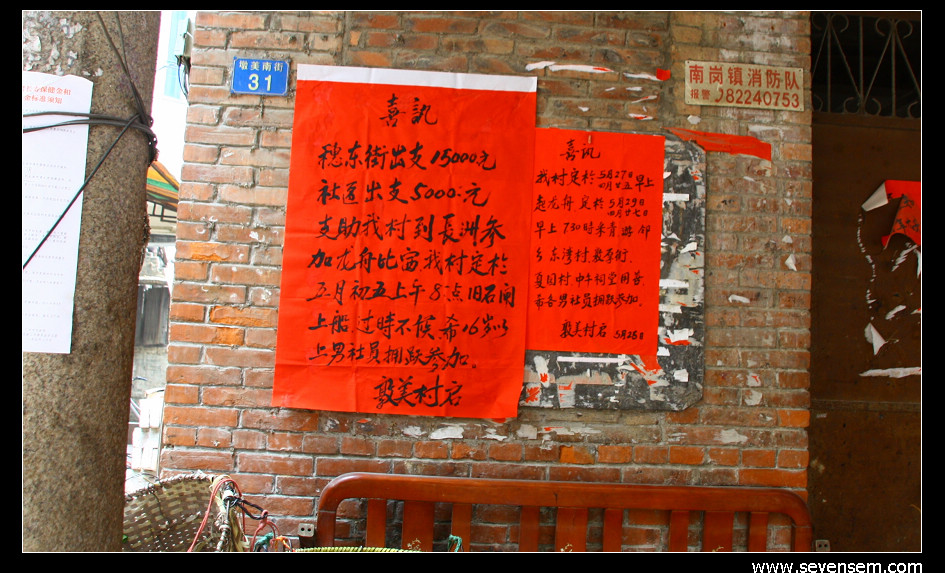 墩美南街
31
喜訊
穗东街出支15000元
社区出支5000元
支助我村到長洲参
加龙舟比富我村定於
五月初五上午8点旧石闸
上船过時不候希16岁以
上男社员拥跃参加。
敦美村启
喜訊
我村定於5月27日
四月廿五早上
起龙舟定於5月29日
四月廿七日
早上730時来青游邻
东湾村
夏园村中午祠堂用
希各男社员拥跃参加。
敦美村启 5月25日
南岗镇消防队
报警 82240753
www.sevensem.com